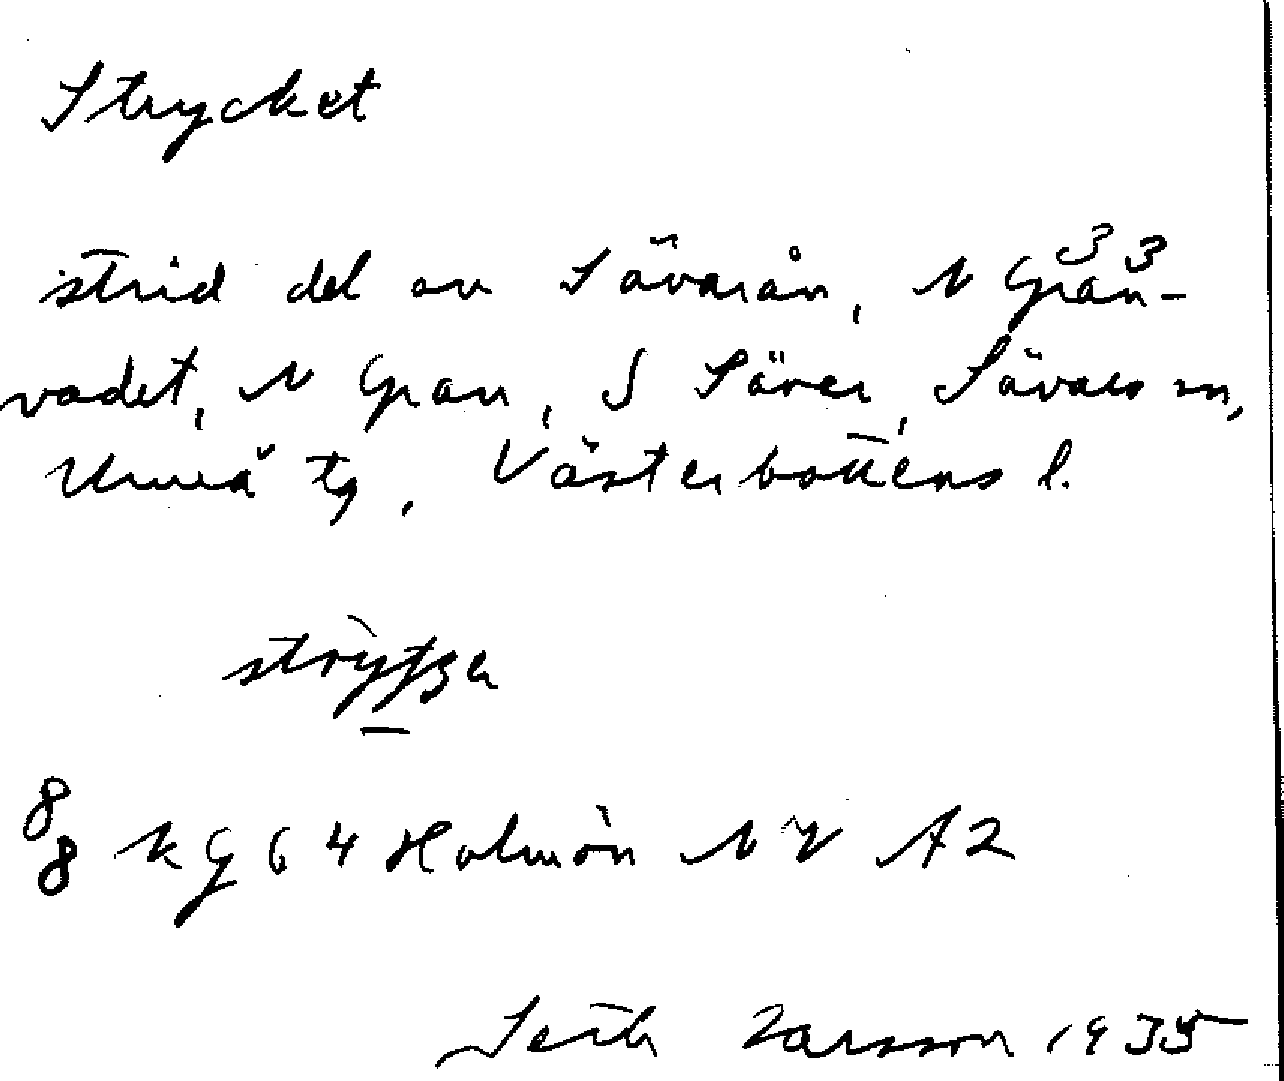 Strycket
strid del av Sävarån, N Gran-
33
vadet, N Gran, S Sävar, Sävars sn,
Umeå tg, Västerbottens l.
8 kg 64 Holmön NV A2
8
Larsson 1935